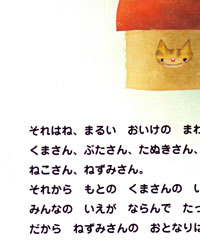 それはね、まるい　おいけの　まわ
くまさん、ぶたさん、たぬきさん、
ねこさん、ねずみさん。
それから　もとの　くまさんの　い
みんなの　いえが　ならんで　たっ
だから　ねずみさんの　おとなりは